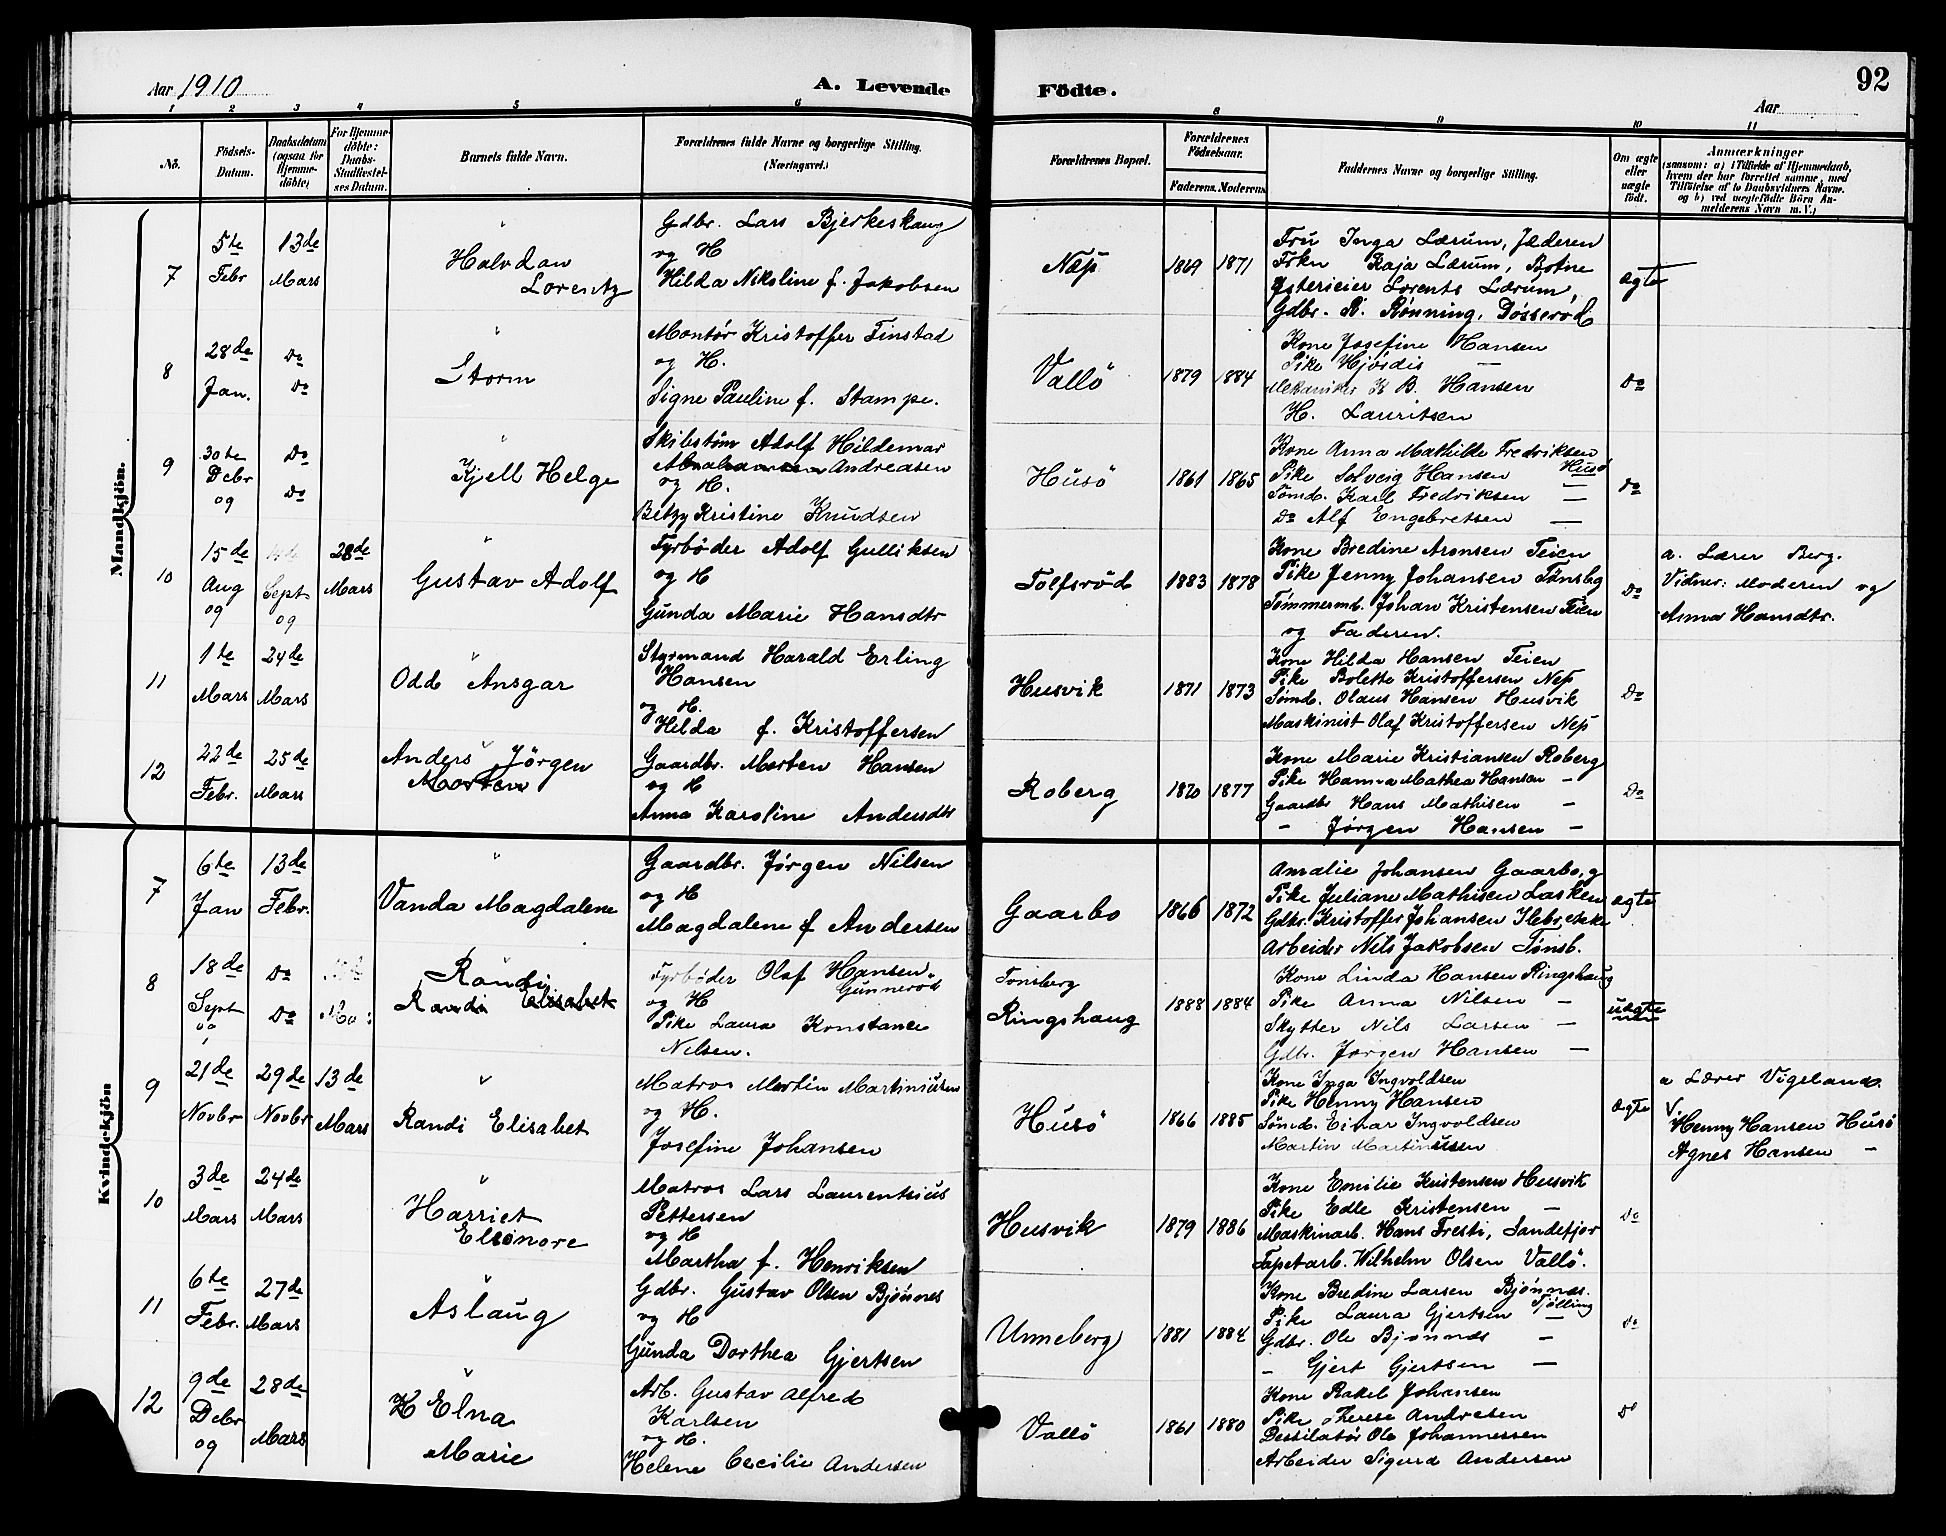 Aar 1910
A. Levende Födte.
Aar
92
1 2 3 4 5 6 8 9 10 11
No.
Födsels-Datum.
Daabsdatum (ogsaa for Hjemmedöbte)
For Hjemmedöbte: Daabs-Stadfæstelses Datum.
Barnets fulde Navn.
Forældrenes fulde Navne og borgerlige Stilling. (Næringsvei.)
Forældrenes Bopæl.
Forældrenes Födselsaar.
Faderens. Moderens.
Faddernes Navne og borgerlige Stilling.
Om ægte eller uægte födt.
Anmærkninger
(saasom: a) i Tilfælde af Hjemmedaab, hvem der har forrettet samme, med Tilföielse af to Daabsvidners Navne. og b) ved uægtefödte Börn Anmelderens Navn m. V.)
Mandkjön.
7
5te Febr
13de Mars
Halvdan
Lorentz
Gdbr. Lars Bjerkeskaug
og H
Hilda Nikoline f. Jakobsen
Nep
1869 1871
Fru Inga Lærum, Jæderen
Frkn Kaja Lærum, Botne
Ysterieier Lorents Lærum,
Gdbr. R. Rønning, Døsserød
ægte
8
28de Jan.
Do Do
Storm
Montør Kristoffer Finstad
og H.
Signe Pauline f. Stampe.
Vallö
1879 1884
Kone Josefine Hansen
Pike Hjördis —
Mekaniker K B. Hansen
H. Lauritsen
Do
9
30te Debr 09
Do Do
Kjell Helge
Skibstöm Adolf Hildemar
Andreasen
og H.
Betzy Kristine Knudsen
Husö
1861 1865
Kone Anna Mathilde Fredriksen Husö
Pike Solveig Hansen —
Sömd. Karl Fredriksen —
Do Alf Engebretsen —
Do
10
15de Aug 09
Sept 09
28de Mars
Gustav Adolf
Fyrbøder Adolf Gulliksen
og H
Gunda Marie Hansdtr
Tolfsrød
1883 1878
Kone Bredine Aronsen Teien
Pike Jenny Johansen Tønsbg
Tømmermd. Johan Kristensen Teien
og Faderen.
Do
a. Lærer Berg.
Vidner: Moderen og
Anna Hansdtr.
11
1te Mars
24de Mars
Odd Ansgar
Styrmand Harald Erling
Hansen
og H.
Hilda f. Kristoffersen
Husvik
1871 1873
Kone Hilda Hansen Teien
Pike Bolette Kristoffersen Nep
Sømd. Olaus Hansen Husvik
Maskinist Olaf Kristoffersen Nep
Do
12
22de Febr.
25de Mars
Anders Jörgen
Morten
Gaardbr. Morten Hansen
og H
Anna Karoline Andersdtr
Roberg
1870 1877
Kone Marie Kristiansen Roberg
Pike Hanna Mathea Hansen —
Gaardbr Hans Mathisen —
— Jørgen Hansen —
Do
Kvindekjön
7
6te Jan
13de Febr.
Vanda Magdalene
Gaardbr. Jørgen Nilsen
og H
Magdalene f Andersen
Gaarbo
1866 1872
Amalie Johansen Gaarbo, g
Pike Juliane Mathisen Lasken
Gdbr. Kristoffer Johansen Ilebrekke
Arbeider Nils Jakobsen Tønsb.
ægte
8
18de Sept
Do Do
Randi
Randi Elisabet
Fyrbøder Olaf Hansen.
Gunnerød
og H
Pike Laura Konstance
Nilsen.
Tonsberg
Ringshaug
1888 1884
Kone Linda Hansen Ringshaug
Pike Anna Nilsen —
Skytter Nils Larsen —
Gdbr. Jørgen Hansen —
uægte
9
21de Novbr
29de Novbr
13de Mars
Randi Elisabet
Matros Martin Martiniusen
og H.
Josefine Johansen
Husö
1866 1885
Kone Inga Ingvoldsen
Pike Henny Hansen
Sömd. Einar Ingvoldsen
Martin Martinusen
ægte
a Lærer Vigeland
V.
Henny Hansen Husö
Agnes Hansen —
10
3de Mars
24de Mars
Harriet
Elionore
Matros Lars Laurentsius
Pettersen
og H
Martha f. Henriksen
Husvik
1879 1886
Kone Emilie Kristensen Husvik
Pike Edle Kristensen —
Maskinarb. Hans Fresti, Sandefjor
Tapetarb. Wilhelm Olsen Vallö.
Do
11
6te Febr.
27de Mars
Aslaug
Gdbr. Gustav Olsen Bjønnes
og H
Gunda Dorthea Gjertsen
Unneberg
1881 1884
Kone Bredine Larsen Bjønnes.
Tjølling
Pike Laura Gjertsen —
Gdbr. Ole Bjønnes —
— Gjert Gjertsen —
Do
12
9de Debr 09
28de Mars
Elna
Marie
Arb. Gustav Alfred
Karlsen
og H.
Helene Cecilie Andersen
Vallö
1861 1880
Kone Rakel Johansen
Pike Therese Andresen
Destilatør Ole Johannessen
Arbeider Sigurd Andersen
Do